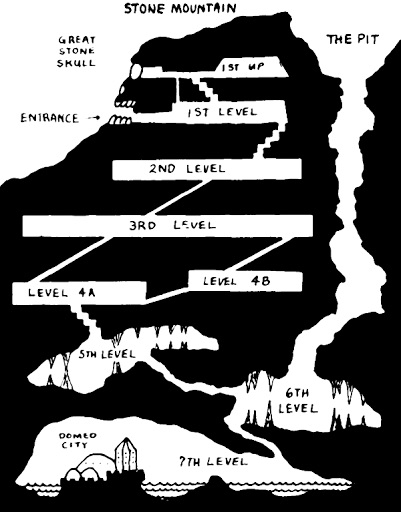 STONE MOUNTAIN
GREAT
STONE
SKULL
THE PIT
1ST UP
ENTRANCE
1ST LEVEL
2ND LEVEL
3RD LEVEL
LEVEL 4A
LEVEL 4B
5TH LEVEL
6TH
LEVEL
DOMED
CITY
7TH LEVEL